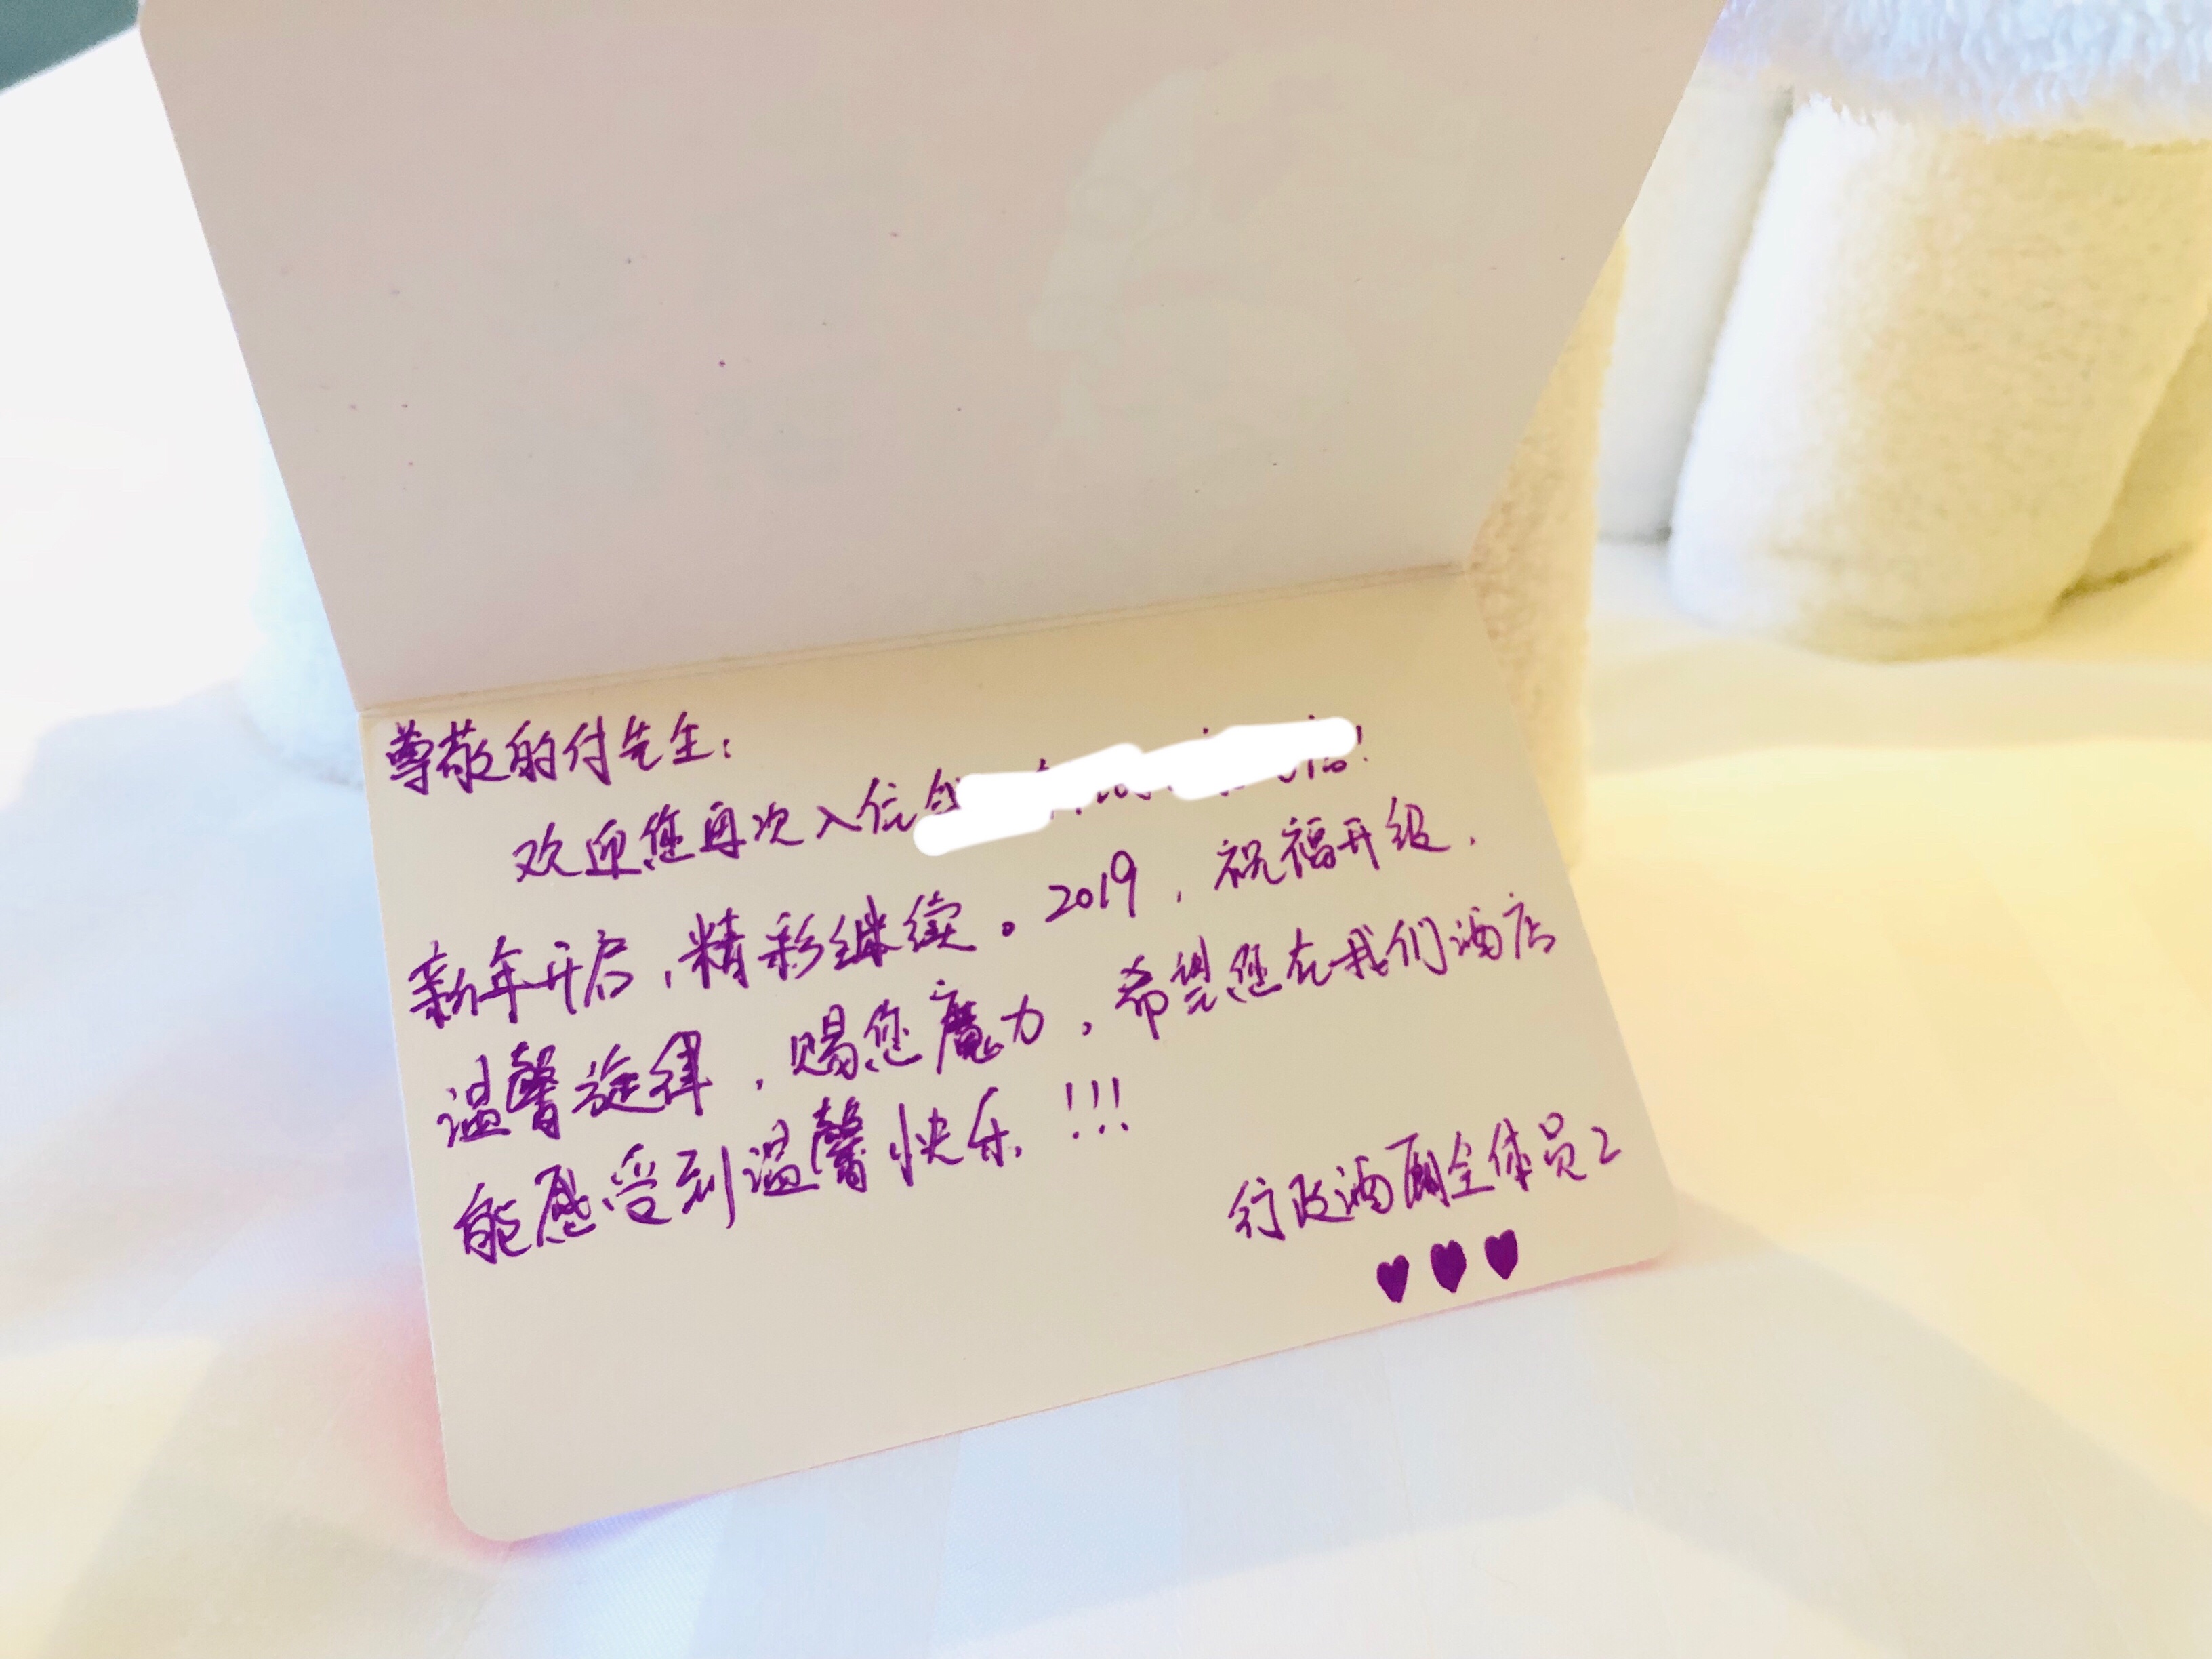 尊敬的付先生：
欢迎您再次入住
新年开启，精彩继续。2019，祝福升级，
温馨旋律，赐您魔力，希望您在我们酒店
能感受到温馨快乐！！！
行政酒廊全体员工
♥♥♥